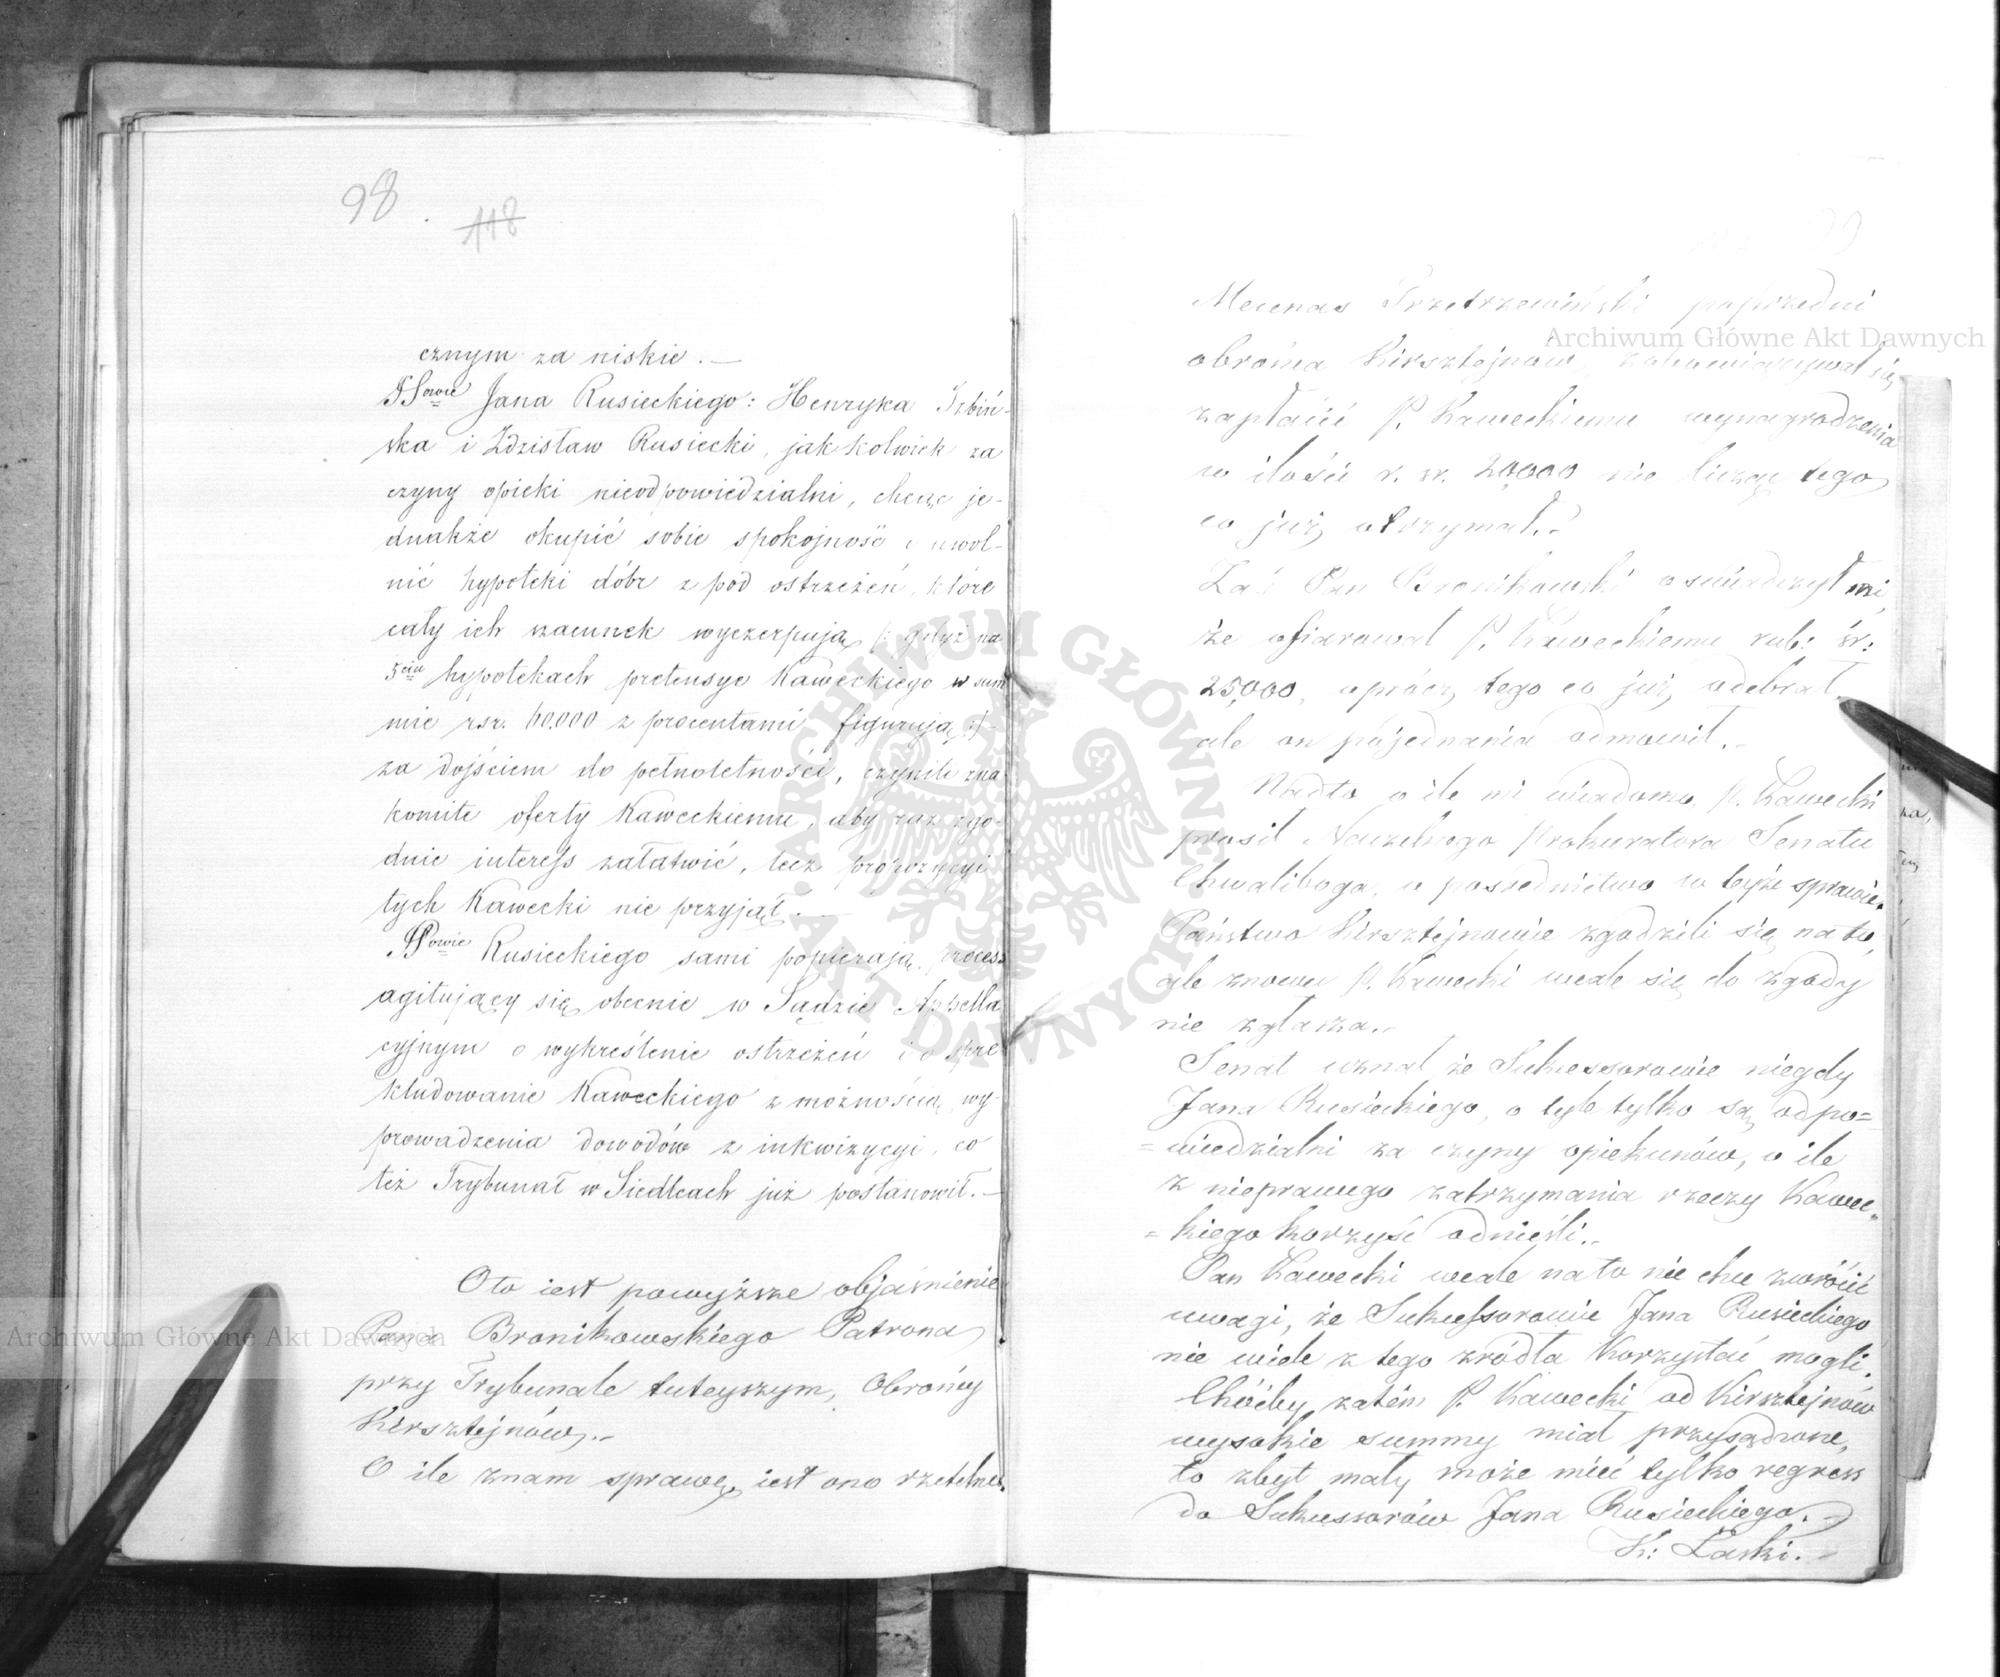 98
118
cznym za niskie. —
SSowie Jana Rusieckiego: Henryka Izbiń-
ska i Zdzisław Rusiecki, jakkolwiek za
czyny opieki nieodpowiedzialni, chcąc je-
dnakże okupić sobie spokojność i uwol-
nić hypoteki dóbr z pod ostrzeżeń, które
cały ich szacunek wyczerpują /: gdyż na
5ciu hypotekach pretensye Kaweckiego w sum
mie rsr. 60.000 z procentami figurują :/-
za dojściem do pełnoletności, czynili zna-
komite oferty Kaweckiemu, aby raz zgo-
dnie interess załatwić, lecz propozycyi
tych Kawecki nie przyjął. —
SSowie Rusieckiego sami popierają proces
agitujący się obecnie w Sądzie Appella
cyjnym o wykreślenie ostrzeżeń i o pre
kludowanie Kaweckiego z możnością wy-
prowadzenia dowodów z inkwizycyi, co
też Trybunał w Siedlcach już postanowił. —
Oto iest powyższe objaśnienie
Pana Bronikowskiego Patrona
przy Trybunale tuteyszym, Obrońcy
Kirsztejnów.-
O ile znam sprawę, iest ono rzetelne.
Mecenas Trzetrzewiński poprzedni
obrońca Kirsztejnów, zobowiązywał się
zapłacić P. Kaweckiemu wynagrodzenia
w ilości r. sr. 20,000 nie licząc tego
co już otrzymał.-
Zaś Pan Bronikowski oświadczył mi,
że ofiarował P. Kaweckiemu rub: śr:
25,000, oprócz tego co już odebrał
ale on pojednania odmówił.-
Nadto o ile mi wiadomo, P. Kawecki
prosił Naczelnego Prokuratora Senatu
Chwaliboga, o pośrednictwo w tejże sprawie.
Państwo Kirsztejnowie zgodzili się na to,
ale znowu P. Kawecki wcale się do zgody
nie zgłasza.-
Senat uznał, że Sukcessorowie niegdy
Jana Rusieckiego, o tyle tylko są odpo=
=wiedzialni za czyny opiekunów, o ile
z nieprawego zatrzymania rzeczy Kawec„
=kiego korzyść odnieśli.-
Pan Kawecki wcale na to nie chce zwrócić
uwagi, że Sukcessorowie Jana Rusieckiego
nie wiele z tego źródła korzystać mogli.
Chóćby zatem P. Kawecki od Kirsztejnów
wysokie summy miał przysądzone,
to zbyt mały może mieć tylko regress
do Sukcessorów Jana Rusieckiego.-
K: Łaski.-
Archiwum Główne Akt Dawnych
Archiwum Główne Akt Dawnych
ARCHIWUM GŁÓWNE AKT DAWNYCH